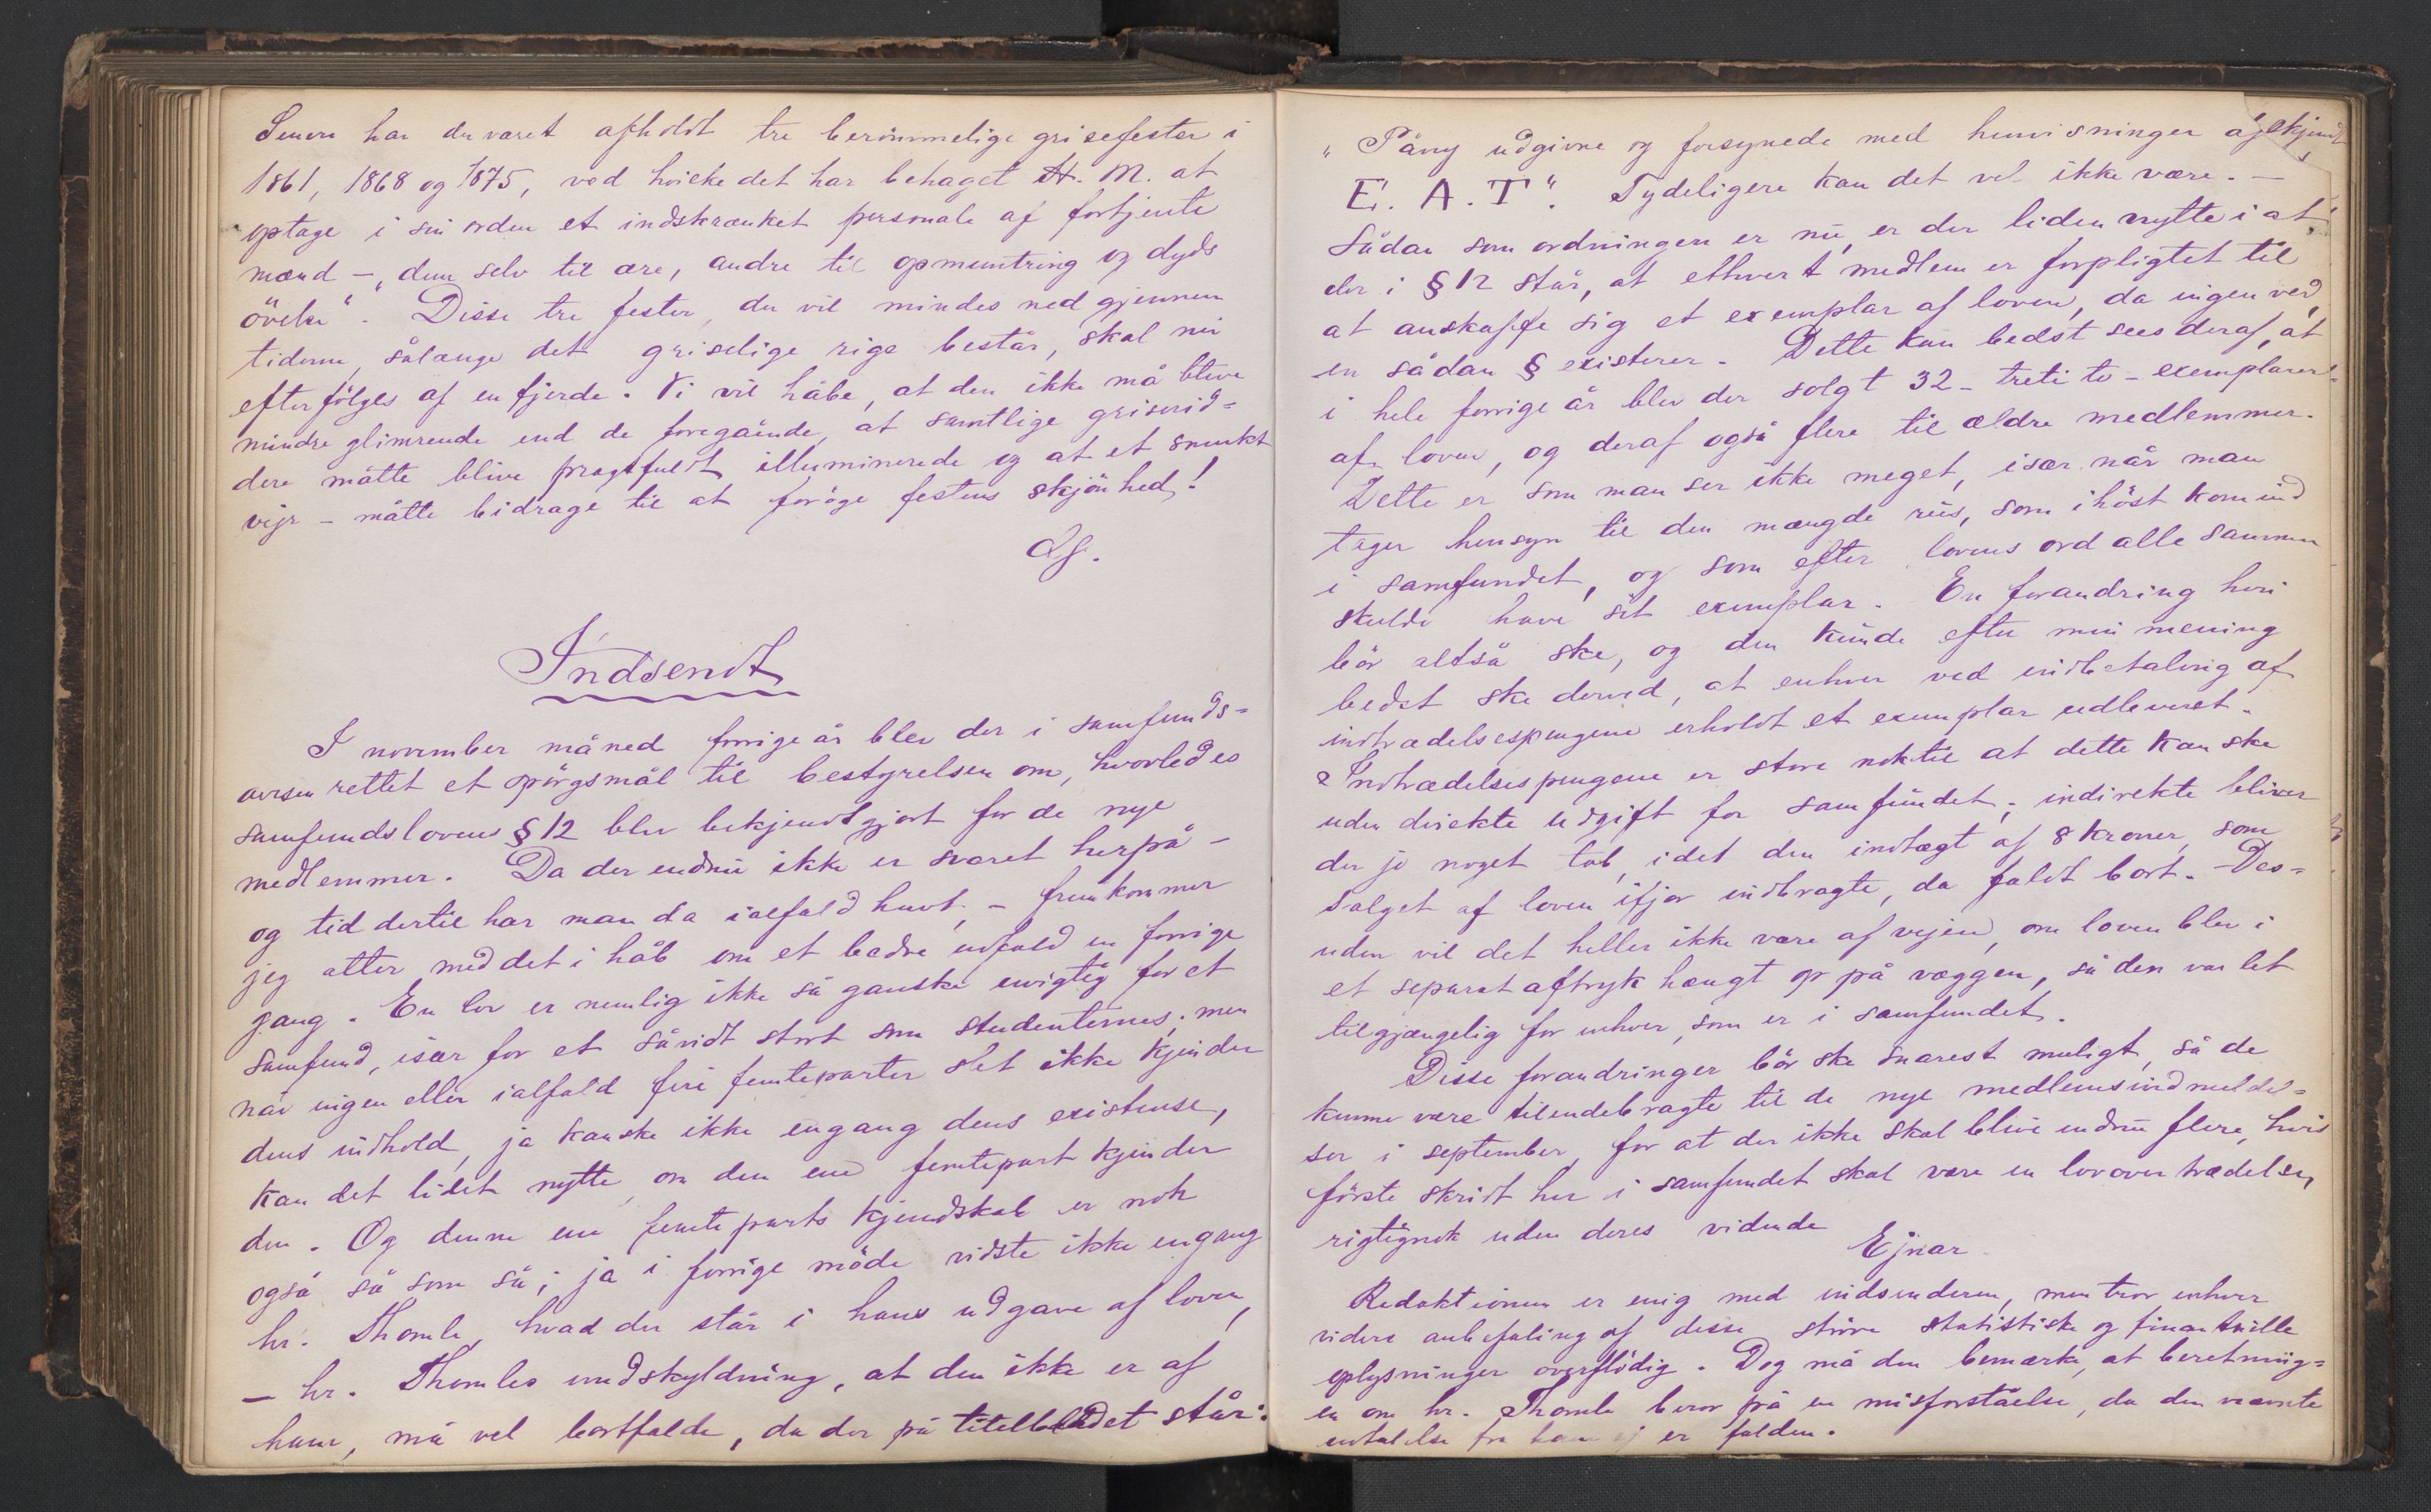 Senere har der været afholdt tre berömmelige grisefester i
1861, 1868 og 1875, ved hvilke det har behaget H. M. at
optage i sin orden et indskrænket personale af fortjente
mænd – „dem selv til ære, andre til opmuntring og dyds
övelse“. Disse tre fester, der vil mindes ned gjennem
tiderne, sålænge det griselige rige består, skal nu
efterfölges af en fjerde. Vi vil håbe, at den ikke må blive
mindre glimrende end de foregående, at samtlige griserid=
dere måtte blive pragtfuldt illuminerede og at et smukt
vejr – måtte bidrage til at foröge festens skjönhed!
Indsendt
I november måned forrige år blev der i samfunds=
avisen rettet et spörgsmål til bestyrelsen om, hvorledes
samfundslovens § 12 blev bekjendtgjort for de nye
medlemmer. Da der endnu ikke er svaret herpå –
og tid dertil har man da ialfald havt, – fremkommer
jeg atter med det i håb om et bedre udfald en forrige
gang. En lov er nemlig ikke så ganske uvigtig for et
samfund, især for et såvidt stort som studenternes; men
når ingen eller ialfald fire femteparter slet ikke kjender
dens indhold, ja kanske ikke engang dens existense,
kan det lidet nytte, om den ene femtepart kjender
den. Og denne ene femteparts kjendskab er nok
også så som så; ja i forrige möde vidste ikke engang
hr. Thomle, hvad der står i hans udgave af loven,
– hr. Thomles undskyldning, at den ikke er af
ham, må vel bortfalde, da der på titelbladet står:
„Påny udgivne og forsynede med henvisninger
E. A. T“. Tydeligere kan det vel ikke være. –
Sådan som ordningen er nu, er der liden nytte i at
der i § 12 står, at ethvert medlem er forpligtet til
at anskaffe sig et exemplar af loven, da ingen ved,
en sådan § existerer. Dette kan bedst sees deraf, at
i hele forrige år blev der solgt 32 – treti to – exemplarer
af loven, og deraf også flere til ældre medlemmer.
Dette er som man ser ikke meget, især når man
tager hensyn til den mængde rus, som i höst kom ind
i samfundet, og som efter lovens ord alle sammen
skulde have sit exemplar. En forandring heri
bör altså ske, og den kunde efter min mening
bedst ske derved, at enhver ved indbetaling af
indtrædelsespengene erholdt et exemplar udleveret.
Indtrædelsespengene er store nok til at dette kan ske
uden direkte udgift for samfundet; indirekte bliver
der jo noget tab, idet den indtægt af 8 kroner, som
salget af loven ifjor indbragte, da faldt bort. Des=
uden vil det heller ikke være af vejen, om loven blev i
et separataftryk hængt op på væggen, så den var let
tilgjængelig for enhver, som er i samfundet.
Disse forandringer bör ske snarest muligt, så de
kunne være tilendebragte til de nye medlemsindmeldel=
ser i september, for at der ikke skal blive endnu flere, hvis
förste skridt her i samfundet skal være en lovovertrædelse,
rigtignok uden deres vidende
Ejnar
Redaktionen er enig med indsenderen, men tror enhver
videre anbefaling af disse större statistiske og finantsielle
oplysninger overflödig. Dog må den bemærke, at beretning=
en om hr. Thomle beror på en misforståelse, da den nævnte
udtalelse fra ham ej er falden.